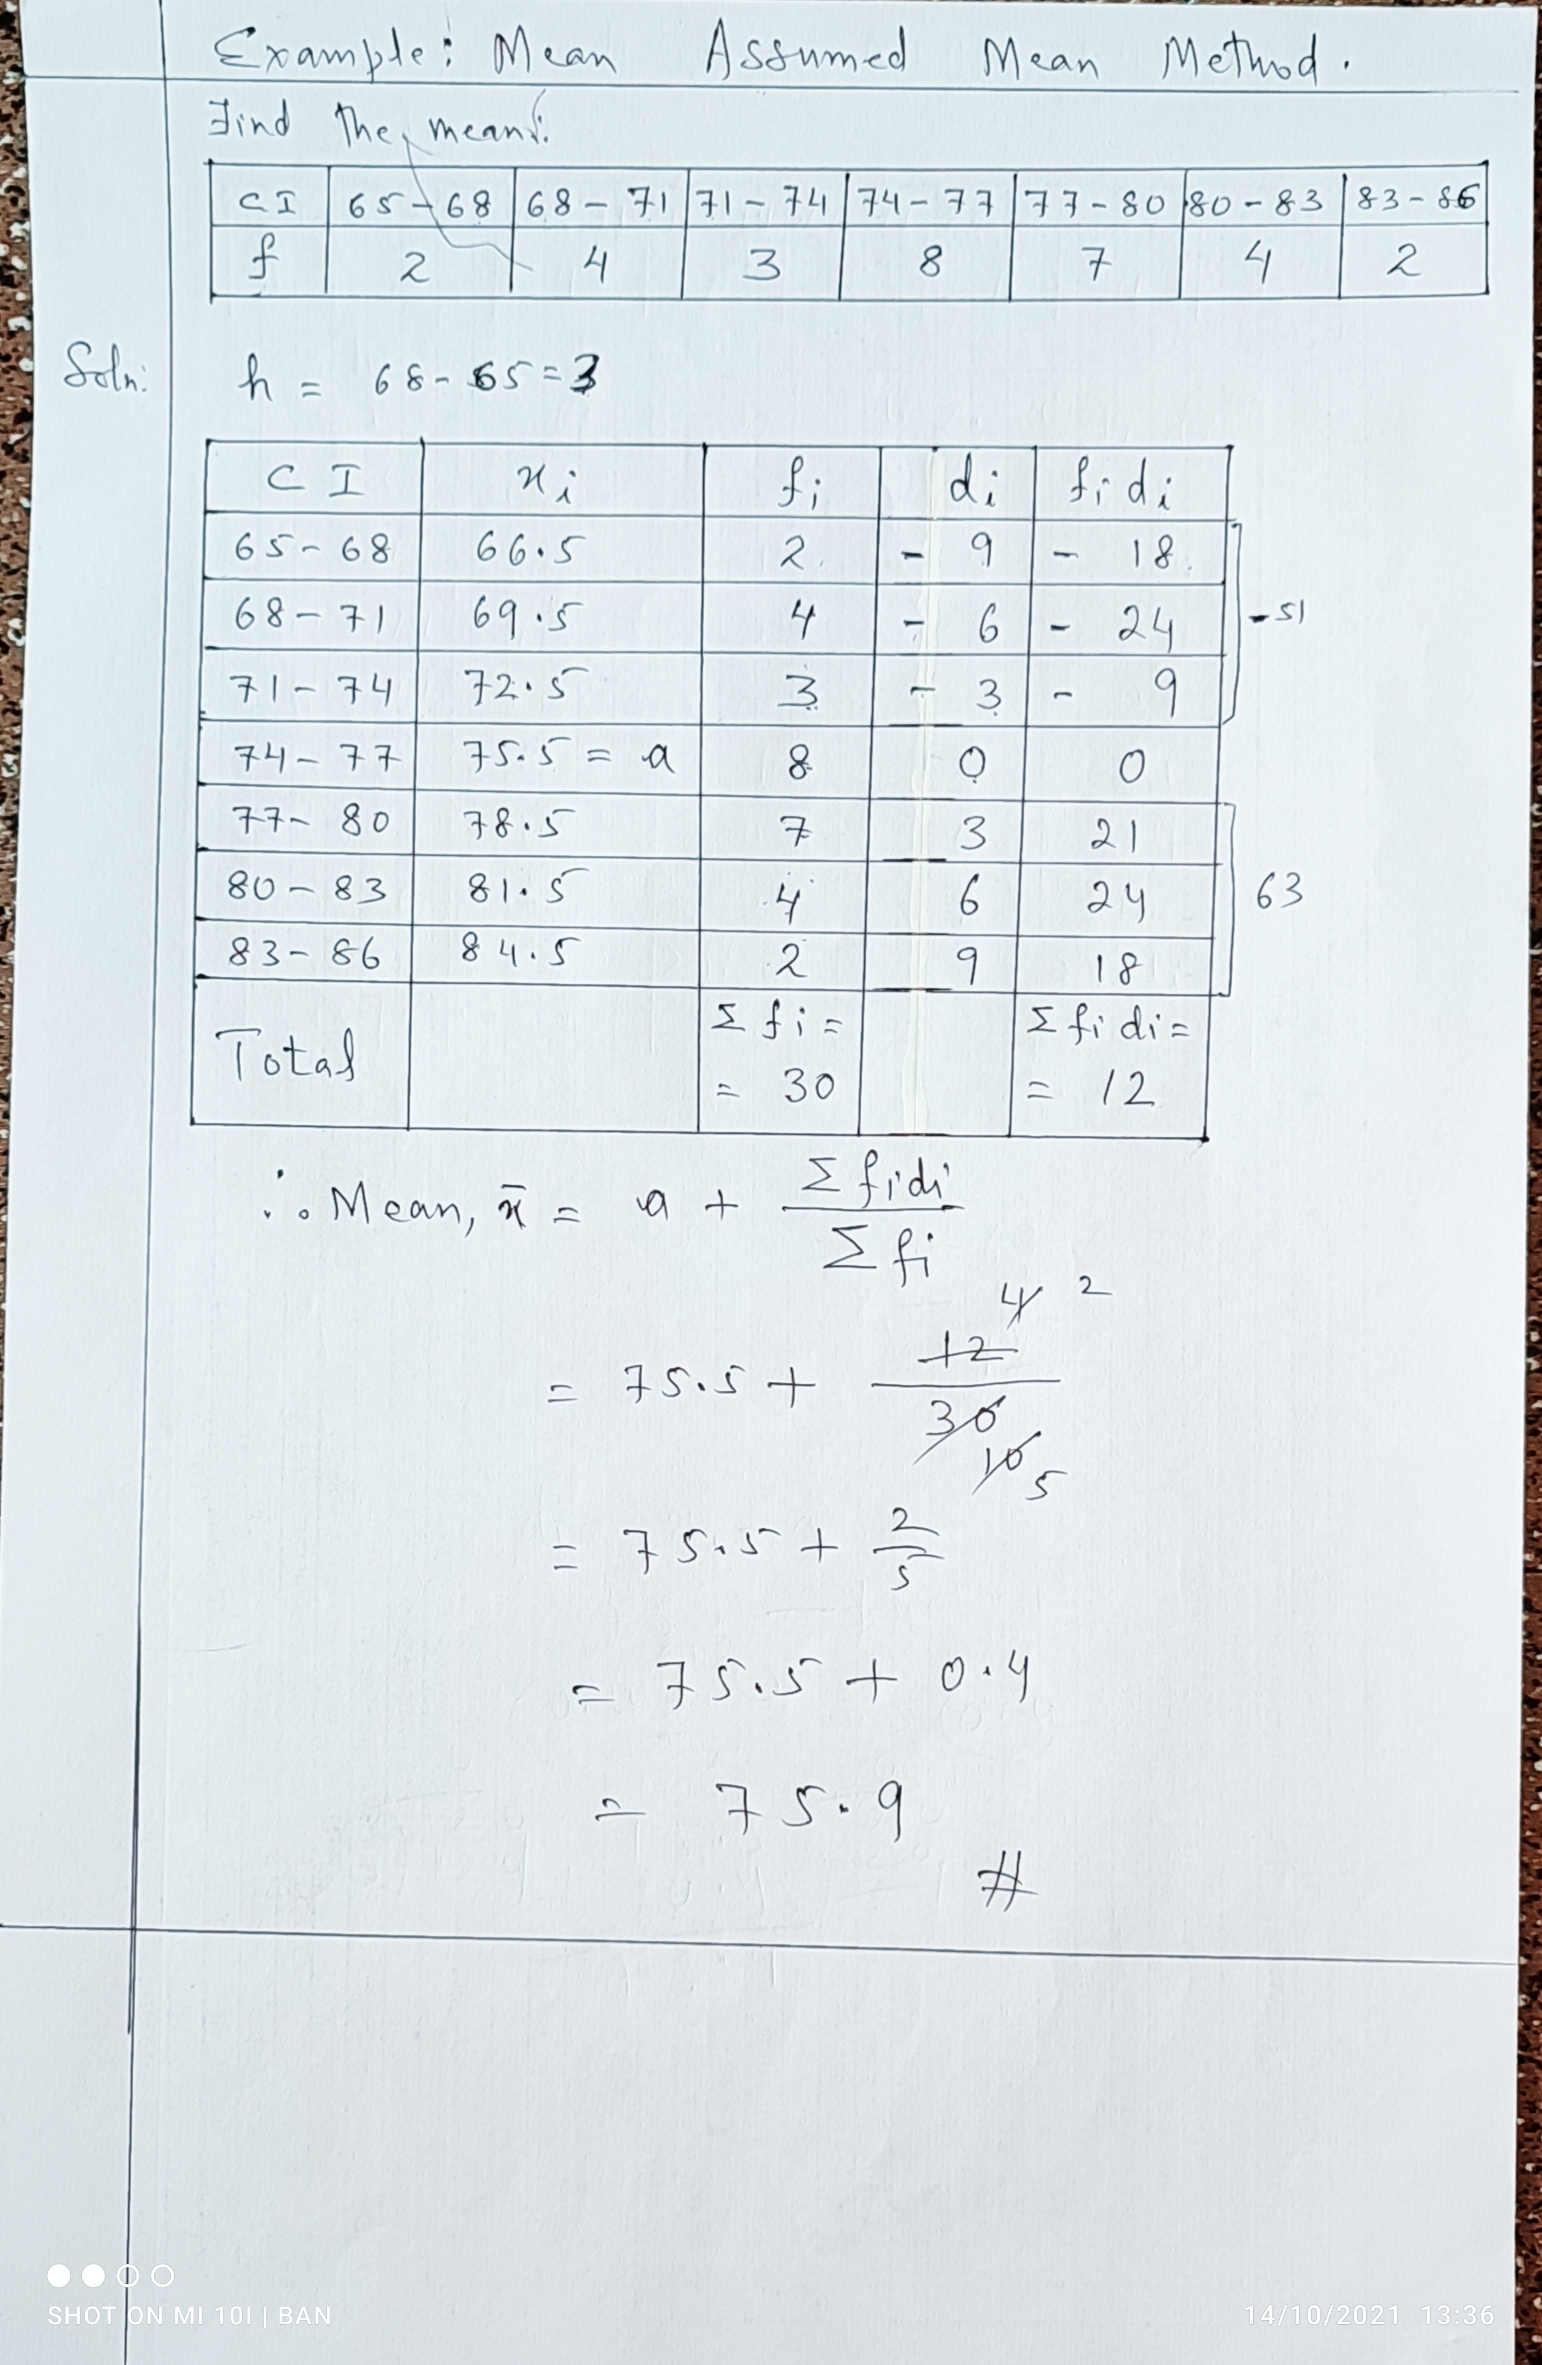 Example: Mean Assumed Mean Method.
Find the mean:
CI 65-68 68-71 71-74 74-77 77-80 80-83 83-86
f 2 4 3 8 7 4 2
Soln: h = 68-65=3
CI xi fi di fidi
65-68 66.5 2 -9 -18
68-71 69.5 4 -6 -24
-51
71-74 72.5 3 -3 -9
74-77 75.5 = a 8 0 0
77-80 78.5 7 3 21
80-83 81.5 4 6 24
63
83-86 84.5 2 9 18
Total Σfi = = 30 Σfidi = = 12
∴ Mean, x̄ = a + Σfidi / Σfi
= 75.5 + 12/30 4 2 10 5
= 75.5 + 2/5
= 75.5 + 0.4
= 75.9
#
SHOT ON MI 10I | BAN
14/10/2021 13:36